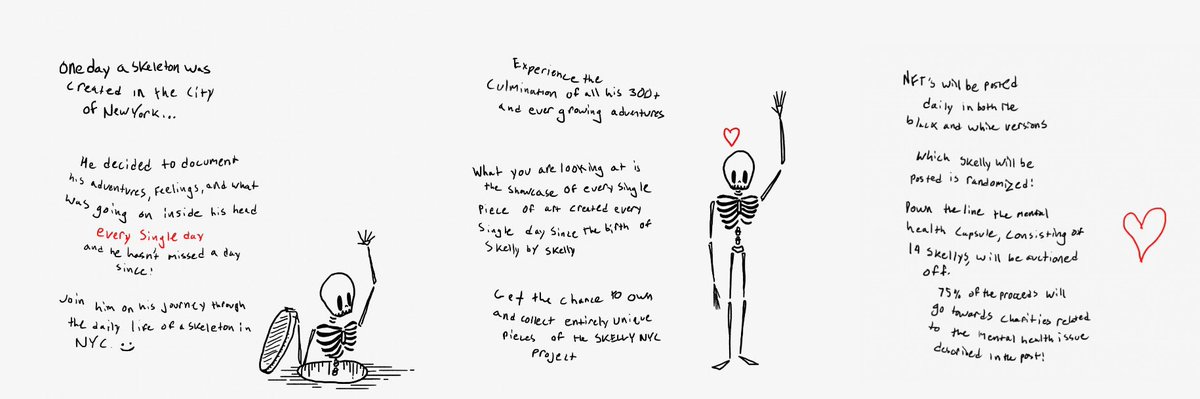 One day a skeleton was
created in the city
of New York...
He decided to document
his adventures, feelings, and what
was going on inside his head
every single day
and he hasn't missed a day
since!
Join him on his journey through
the daily life of a skeleton in
NYC :)
Experience the
culmination of all his 300+
and ever growing adventures
What you are looking at is
the showcase of every single
piece of art created every
single day since the birth of
Skelly by Skelly
Get the chance to own
and collect entirely unique
pieces of the SKELLY NYC
project
NFT's will be posted
daily in both the
black and white versions
Which Skelly will be
posted is randomized!
Down the line the mental
health capsule, consisting of
14 skellys, will be auctioned
off.
75% of the proceeds will
go towards charities related
to the mental health issue
described in the post!